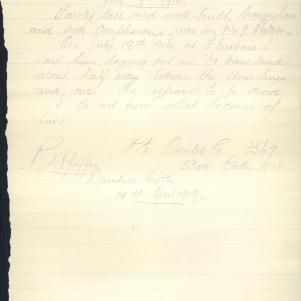 July 19th 1916.
Fairly tall and well built, brown hair
and red complexion, was in No 9 Platoon
on July 19th 1916 at Fleurbaix.
Saw him laying out in No mans land
about half way between the Hun lines
and ours. He appeared to be dead.
I do not know what became of
him
Pte. G. 3567.
53rd Battn A.I.F.
Castle
14th April 1917.